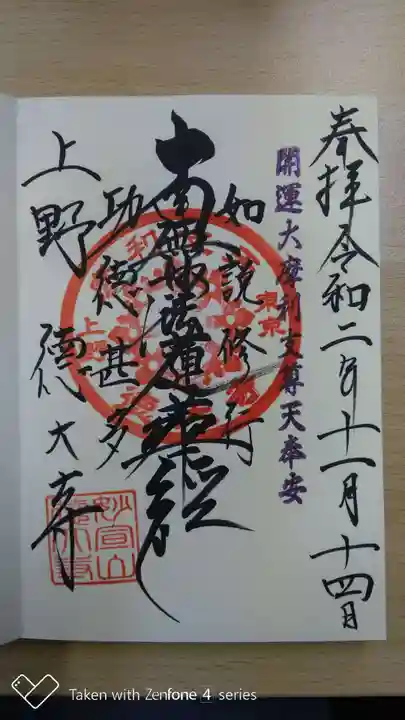 奉拝 令和二年十一月十四日
開運大摩利支尊天奉安
如説修行
南無妙法蓮華経
功徳甚多
上野 徳大寺
東京
上野
妙宣山
徳大寺
Taken with Zenfone 4 series